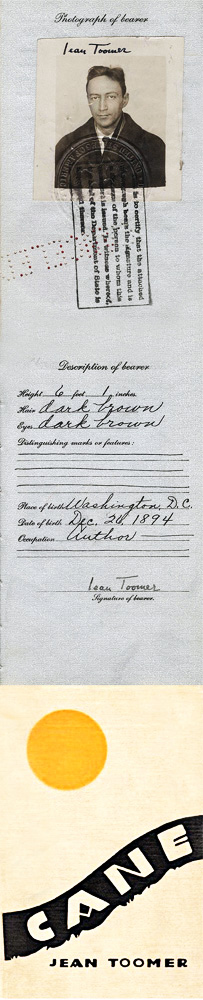 Photograph of bearer
Jean Toomer
is to certify that the attached
graph bears the signature and is
ss of the person to whom this
is issued. In witness whereof,
of the Department of State is
Description of bearer
Height 6 feet 1 inches
Hair dark brown
Eyes dark brown
Distinguishing marks or features:
Place of birth Washington, D.C.
Date of birth Dec. 26, 1894
Occupation Author
Jean Toomer
Signature of bearer.
CANE
JEAN TOOMER